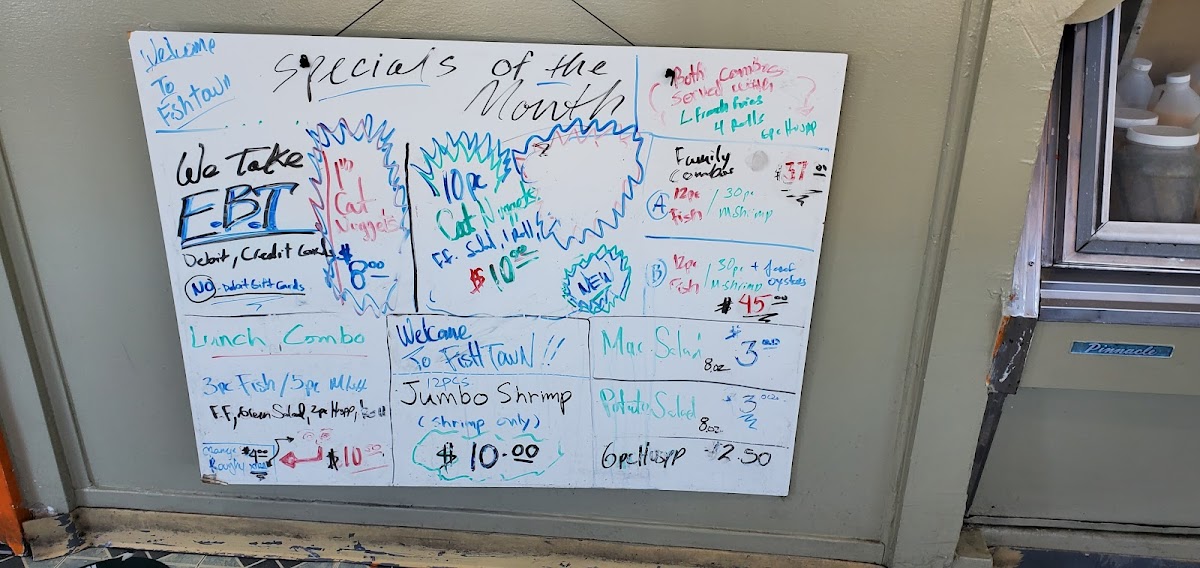 Welcome
To
Fishtown
Specials of the
Month
Both Combos
Served with
L French Fries
4 Rolls
6pc Hushpp
We Take
E.B.T
Debit, Credit Cards
NO Debit Gift Cards
Cat
Nuggets
$8.00
10pc
Cat Nuggets
F.F. Salad, 1 Roll,
$10.00
NEW
Family
Combos
$37.00
A
12pc
Fish / 30pc
M.shrimp
B
12pc
Fish / 30pc
M.shrimp
+ oysters
$45.00
Lunch Combo
3pc Fish / 5pc
F.F,
$4.00
Roughy
$10.50
Welcome
To FISHTOWN!!
12PCS
Jumbo Shrimp
(shrimp only)
$10.00
Mac Salad
8oz
$3
Potato Salad
8oz
$3
6pc Huspp $2.50
Pinnacle